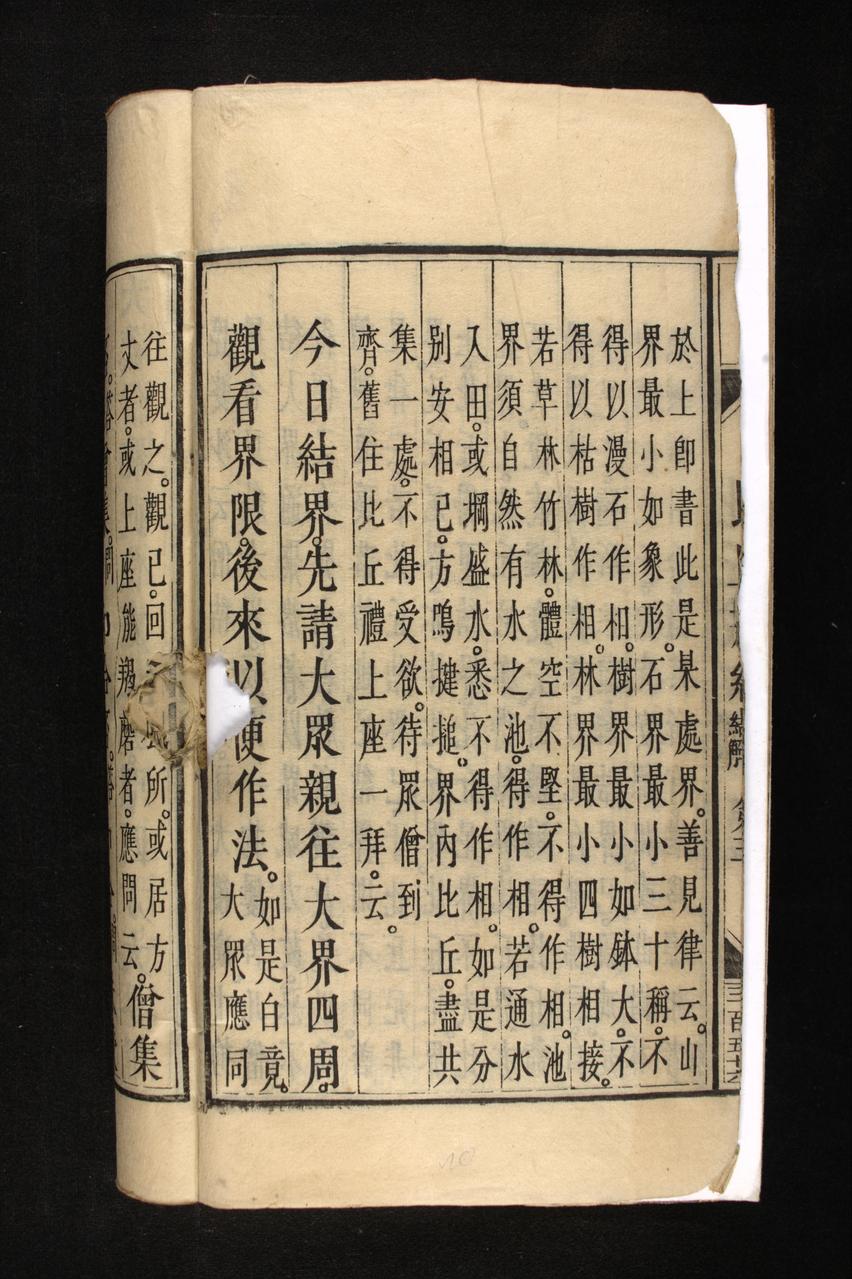 於上卽書此是某處界。善見律云。山
界最小如象形。石界最小三十稱。不
得以漫石作相。樹界最小如鉢大。不
得以枯樹作相。林界最小四樹相接。
若草林竹林。體空不堅。不得作相。池
界須自然有水之池。得作相。若通水
入田。或堈盛水。悉不得作相。如是分
別安相已。方鳴揵搥。界內比丘。盡共
集一處。不得受欲。待眾僧到
齊。舊住比丘禮上座一拜。云。
今日結界。先請大眾親往大界四周。
觀看界限。後來以便作法。
如是白竟。
大眾應同
往觀之。觀已。回所。或居方
丈者。或上座能羯磨者。應問云。
僧集
第三
三百五十六